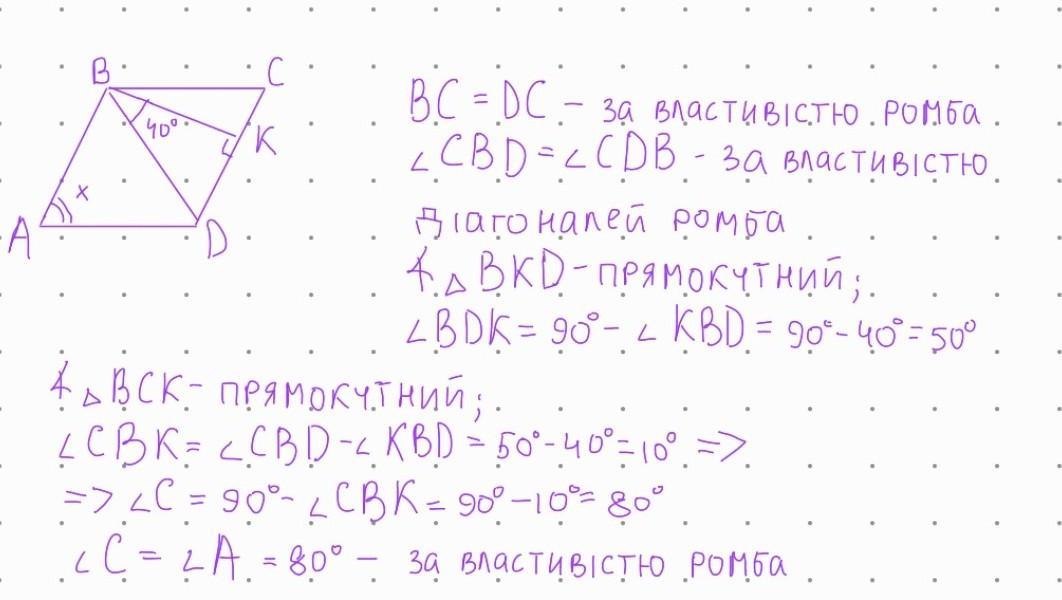 B C
40°
K
x
A D
BC = DC – за властивістю ромба
∠CBD = ∠CDB - за властивістю
діагоналей ромба
∡ △ BKD - прямокутний;
∠BDK = 90° - ∠KBD = 90° - 40° = 50°
∡ △ BCK - прямокутний;
∠CBK = ∠CBD - ∠KBD = 50° - 40° = 10° =>
=> ∠C = 90° - ∠CBK = 90° - 10° = 80°
∠C = ∠A = 80° – за властивістю ромба